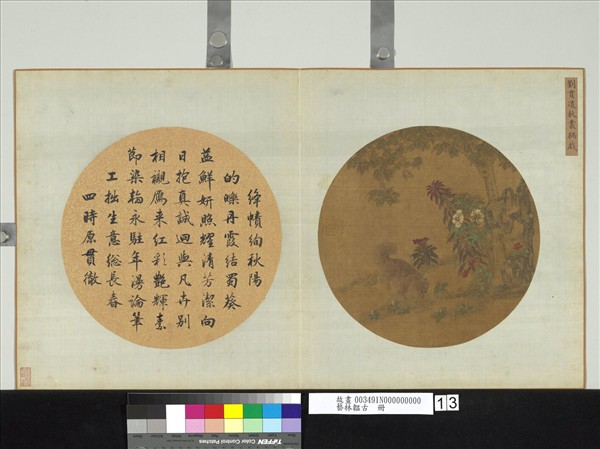 劉貫道秋叢戲
絳幘絢秋陽
的皪丹霞結蜀葵
益鮮妍照耀清芳潔向
日抱真誠迥與凡卉別
相襯雁来紅彩艷輝素
節染翰永駐年漫論筆
工拙生意總長春
四時原貫徹
故畫 003491N000000000
藝林韞古 冊
13
TIFFEN Color Control Patches